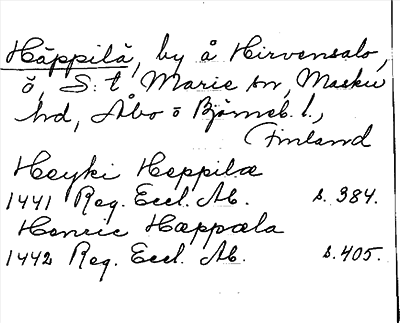 Häppilä, by å Hirvensalo,
ö, S:t Marie sn, Masku
hd, Åbo o Björneb. l.,
Finland
Heyki Heppilæ
1441 Reg. Eccl. Ab. s. 384.
Henric Hæppæla
1442 Reg. Eccl. Ab. s. 405.